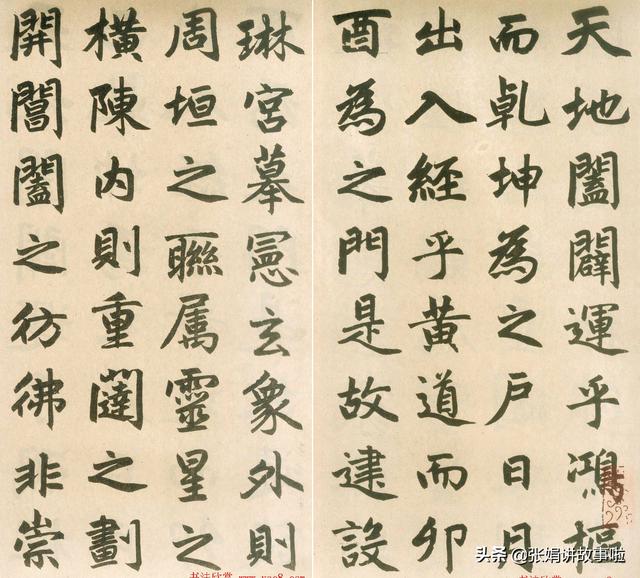 天地闔闢運乎鴻樞
而乹坤為之戶日月
出入經乎黃道而卯
酉為之門是故建設
琳宮摹憲玄象外則
周垣之聯属靈星之
橫陳内則重闥之劃
開閶闔之彷彿非崇
头条 @张娟讲故事啦